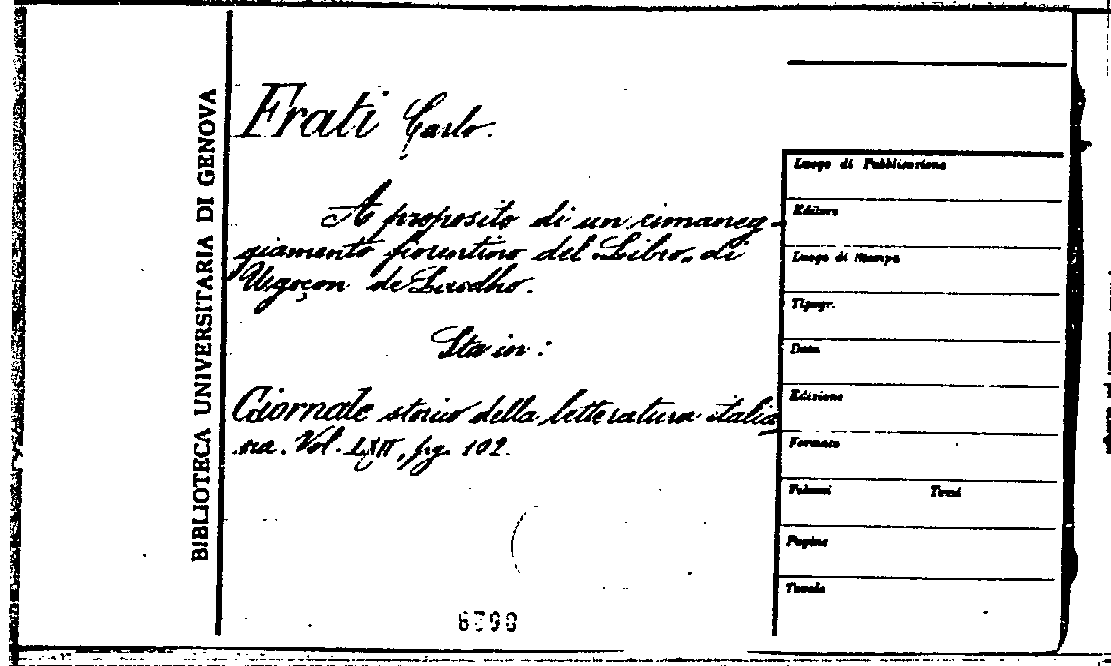 BIBLIOTECA UNIVERSITARIA DI GENOVA
Frati Carlo.
A proposito di un rimaneg-
giamento fiorentino del "Libro" di
Ugoçon de Laodho.
Sta in:
Giornale storico della letteratura italia
na. Vol. LXII, pg. 102.
Luogo di Pubblicazione
Editore
Luogo di Stampa
Tipogr.
Data
Edizione
Formato
Volumi Tomi
Pagine
Tavole